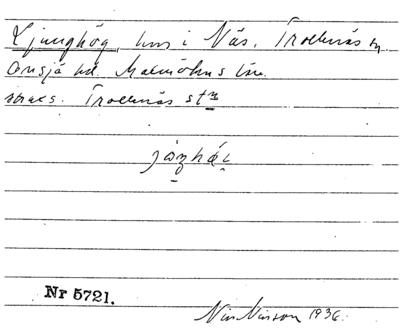 Ljunghög, hus i Näs, Trollenäs sn
Onsjö hd. Malmöhus län.
Trollenäs stn
Nr 5721.
Nils Nilsson 1936.